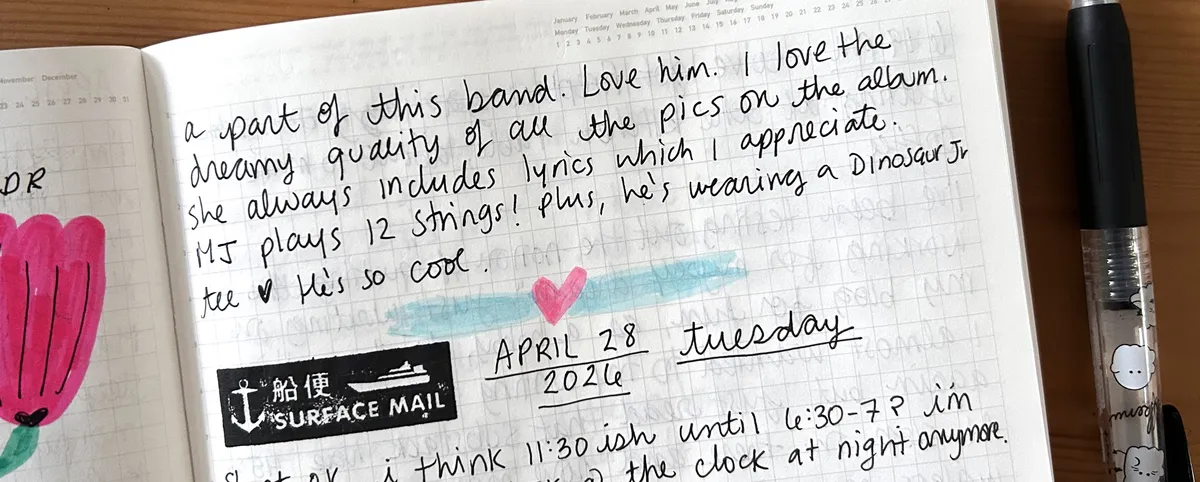 November December
24 25 26 27 28 29 30 31
DR
January February March April May June July
Monday Tuesday Wednesday Thursday Friday Saturday Sunday
1 2 3 4 5 6 7 8 9 10 11 12 13 14 15 16 17 18 19 20 21 22 23 24 25 26
a part of this band. Love him. I love the
dreamy quality of all the pics on the album.
she always includes lyrics which I appreciate.
MJ plays 12 strings! plus, he's wearing a Dinosaur Jr
tee ♥ He's so cool.
APRIL 28 tuesday
2026
船便
SURFACE MAIL
i think 11:30 ish until 6:30-7? i'm
the clock at night anymore.